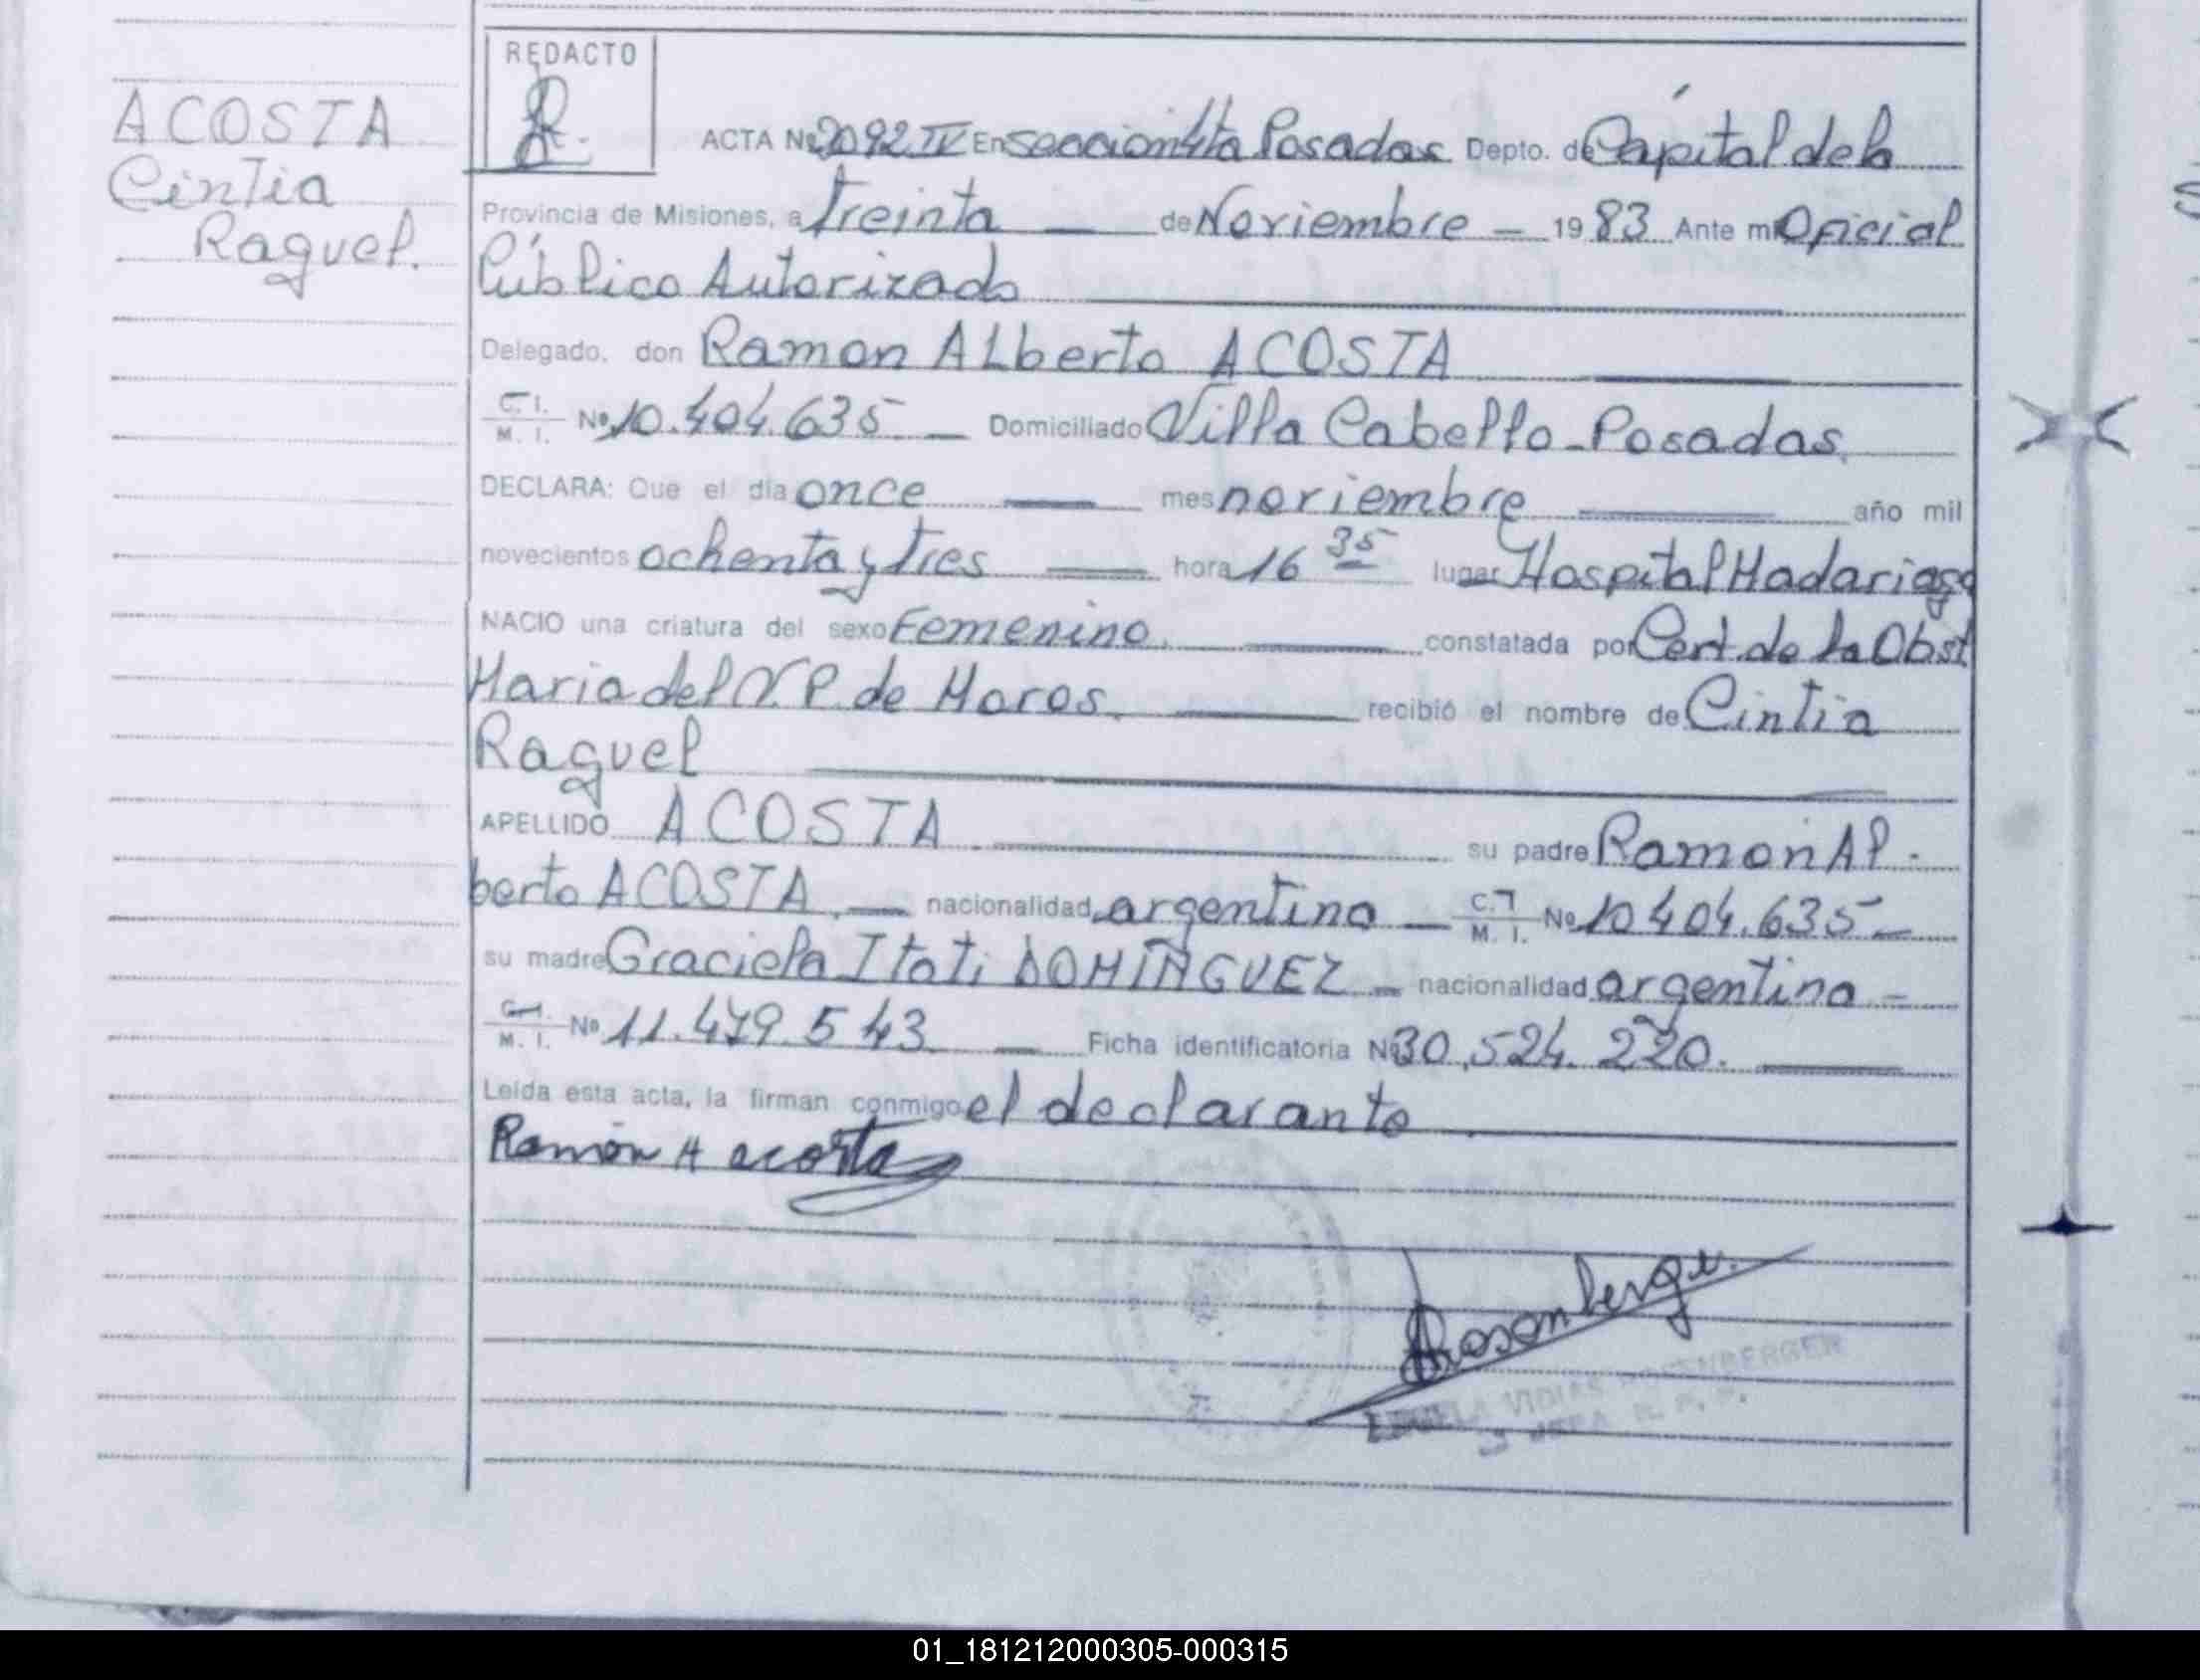 REDACTO
ACOSTA
Cintia
Raquel.
ACTA Nº 2092 IV En seccion 4ta Posadas Depto. de Cápital de la
Provincia de Misiones, a Treinta — de Noviembre — 1983 Ante mi Oficial
Público Autorizado
Delegado, don Ramon ALberto ACOSTA
C. I. / M. I. Nº 10.404.635 — Domiciliado Villa Cabello - Posadas.
DECLARA: Que el día once — mes noviembre — año mil
novecientos ochenta y tres — hora 16 35 lugar Hospital Madariaga
NACIO una criatura del sexo Femenino. — constatada por Cert. de la Obst
Maria del N. P. de Moros. — recibió el nombre de Cintia
Raquel
APELLIDO ACOSTA — su padre Ramon Al-
berto ACOSTA. — nacionalidad argentina — C. I. / M. I. Nº 10404.635 —
su madre Graciela Itati DOMINGUEZ — nacionalidad argentina —
C. I. / M. I. Nº 11.479.543 — Ficha identificatoria Nº 30.524.220. —
Leída esta acta, la firman conmigo el declarante
Ramón A acosta
Rosenberger
VIDIAS ROSENBERGER
JEFA R. P.
01_181212000305-000315